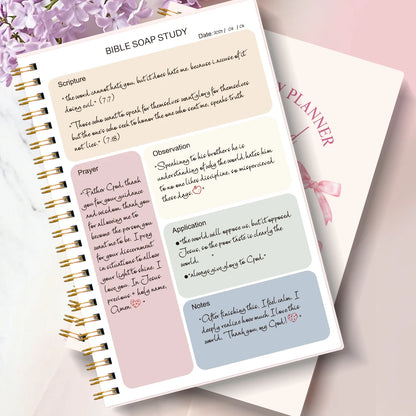 BIBLE SOAP STUDY
Date:
Scripture
"the world cannot hate you, but it does hate me, because i accuse it of
doing evil." (7:7)
"Those who want to speak for themselves want glory for themselves
but the one's who seek to honor the one who sent me, speaks truth
not lies." (7:18)
Prayer
"Father God, thank
you for your guidance
and wisdom. thank you
for allowing me to
become the person you
want me to be. I pray
for your discernment
in situations to allow
your light to shine. I
love you. In Jesus
precious + holy name,
Amen
Observation
"Speaking to his brothers he is
understanding of why the world hates him
to no one likes discipline, so misperceived
these days.
Application
• the world will oppose us, but it opposed
Jesus, so the poor taste is clearly the
world.
• always give glory to God."
Notes
"After finishing this, I feel calm. I
deeply realize how much I love this
world. Thank you, my God!
PLANNER